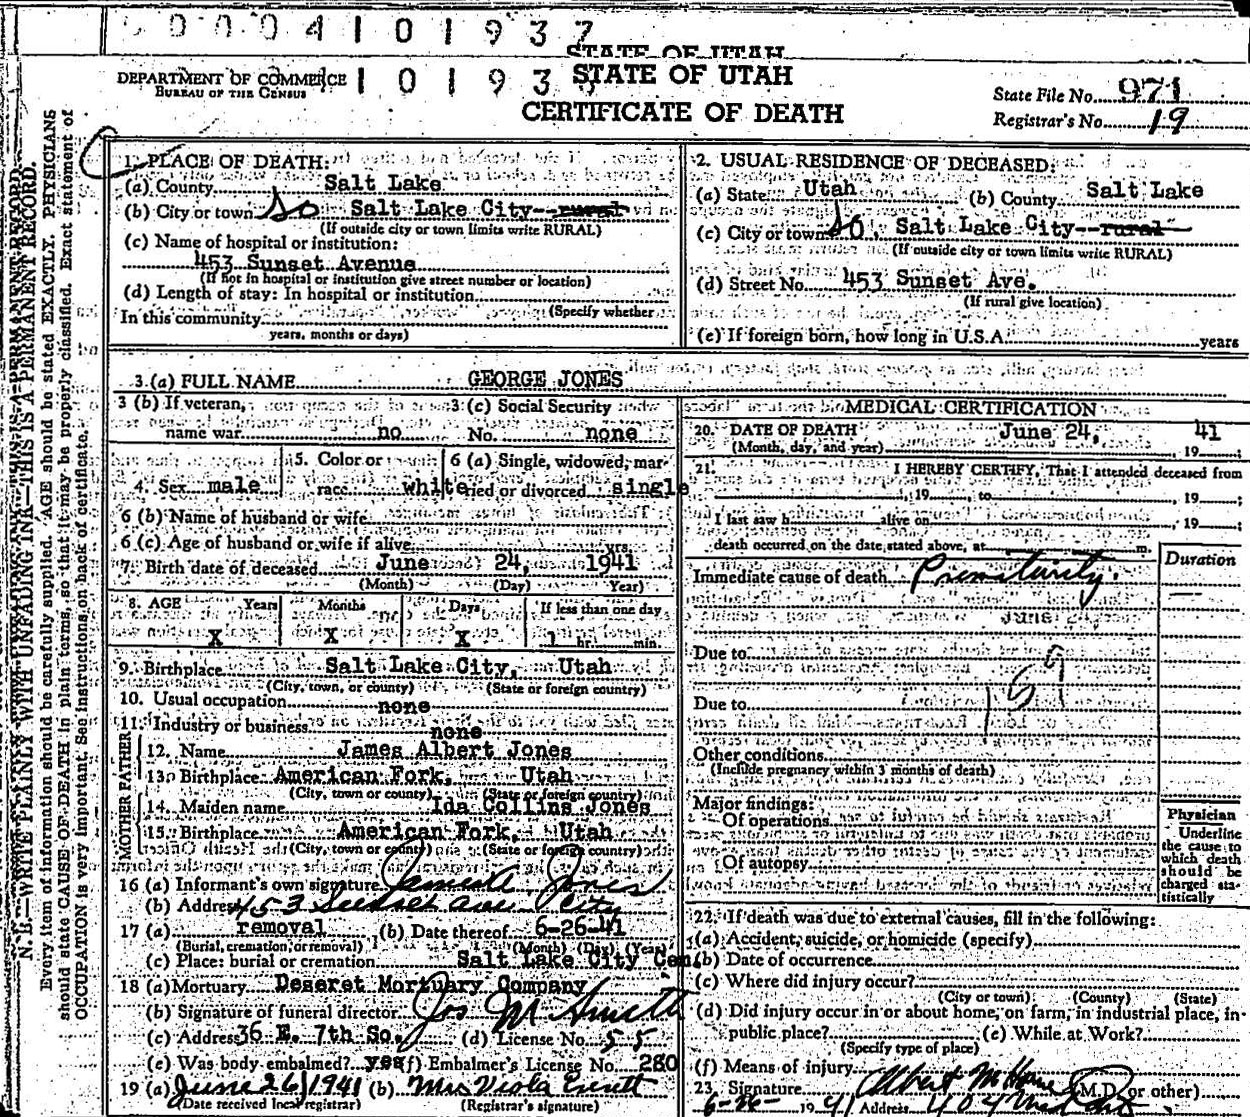 0004101937
STATE OF UTAH
DEPARTMENT OF COMMERCE
BUREAU OF THE CENSUS
10193
STATE OF UTAH
CERTIFICATE OF DEATH
State File No. 971
Registrar's No. 19
N. B.—WRITE PLAINLY WITH UNFADING INK—THIS IS A PERMANENT RECORD.
Every item of information should be carefully supplied. AGE should be stated EXACTLY. PHYSICIANS
should state CAUSE OF DEATH in plain terms, so that it may be properly classified. Exact statement of
OCCUPATION is very important. See instructions on back of certificate.
1. PLACE OF DEATH:
(a) County Salt Lake
(b) City or town So Salt Lake City--rural
(If outside city or town limits write RURAL)
(c) Name of hospital or institution:
453 Sunset Avenue
(If not in hospital or institution give street number or location)
(d) Length of stay: In hospital or institution
(Specify whether
In this community
years, months or days)
2. USUAL RESIDENCE OF DECEASED:
(a) State Utah (b) County Salt Lake
(c) City or town So. Salt Lake City--rural
(If outside city or town limits write RURAL)
(d) Street No. 453 Sunset Ave.
(If rural give location)
(e) If foreign born, how long in U.S.A. years
3 (a) FULL NAME GEORGE JONES
3 (b) If veteran, 3 (c) Social Security
name war no No. none
4. Sex male
5. Color or
race white
6 (a) Single, widowed, mar-
ried or divorced single
6 (b) Name of husband or wife
6 (c) Age of husband or wife if alive yrs.
7. Birth date of deceased June 24, 1941
(Month) (Day) Year)
8. AGE Years Months Days If less than one day
X X X 1 hr. min.
9. Birthplace Salt Lake City, Utah
(City, town, or county) (State or foreign country)
10. Usual occupation none
11. Industry or business none
FATHER
12. Name James Albert Jones
13. Birthplace American Fork, Utah
(City, town or county) (State or foreign country)
MOTHER
14. Maiden name Ida Collins Jones
15. Birthplace American Fork, Utah
(City, town or county) (State or foreign country)
16 (a) Informant's own signature James A. Jones
(b) Address 453 Sunset Ave City
17 (a) removal (b) Date thereof 6-26-41
(Burial, cremation, or removal) (Month) (Day) (Year)
(c) Place: burial or cremation Salt Lake City Cem.
18 (a) Mortuary Deseret Mortuary Company
(b) Signature of funeral director Jos M Smith
(c) Address 36 E. 7th So. (d) License No. 55
(e) Was body embalmed? yes (f) Embalmer's License No. 280
19 (a) June 26, 1941 (b) Mrs Viola
(Date received local registrar) (Registrar's signature)
MEDICAL CERTIFICATION
20. DATE OF DEATH June 24, 19 41
(Month, day, and year)
21. I HEREBY CERTIFY, That I attended deceased from
, 19 , to , 19 ;
I last saw h alive on , 19 ;
death occurred on the date stated above, at m.
Duration
Immediate cause of death Prematurity.
Due to
159
Due to
Other conditions
(Include pregnancy within 3 months of death)
Major findings:
Of operations
Of autopsy
Physician
Underline
the cause to
which death
should be
charged sta-
tistically
22. If death was due to external causes, fill in the following:
(a) Accident, suicide, or homicide (specify)
(b) Date of occurrence
(c) Where did injury occur?
(City or town) (County) (State)
(d) Did injury occur in or about home, on farm, in industrial place, in
public place? (e) While at Work?
(Specify type of place)
(f) Means of injury
23. Signature Albert (M.D. or other)
6-26- 19 41 Address 404